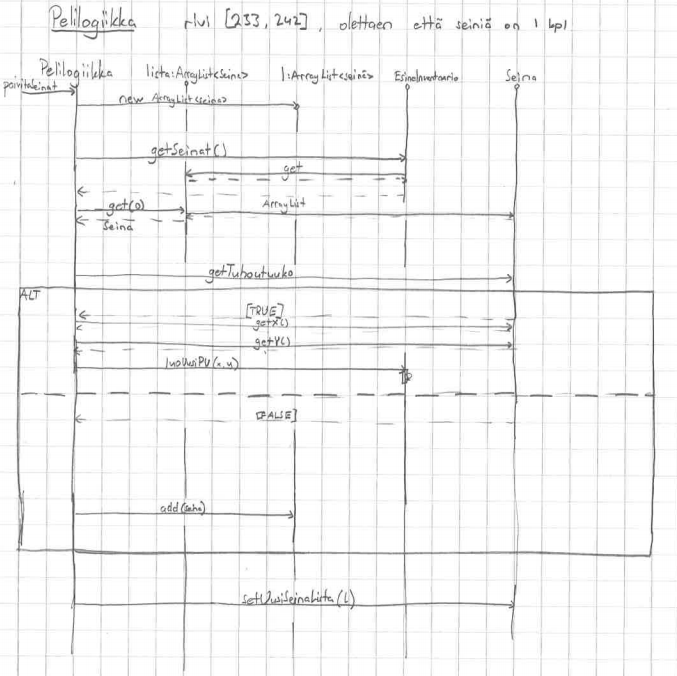 Pelilogiikka rivi [233, 242], olettaen että seiniä on 1 kpl
Pelilogiikka lista:ArrayList<Seinä> l:ArrayList<seinä> EsineInventaario Seina
paivitaSeinat
new ArrayList<seinä>
getSeinat()
get
get(0) ArrayList
Seinä
getTuhoutuuko
ALT
[TRUE]
getX()
getY()
luoUusiPU(x,y)
[FALSE]
add
setUusiSeinaLista(l)